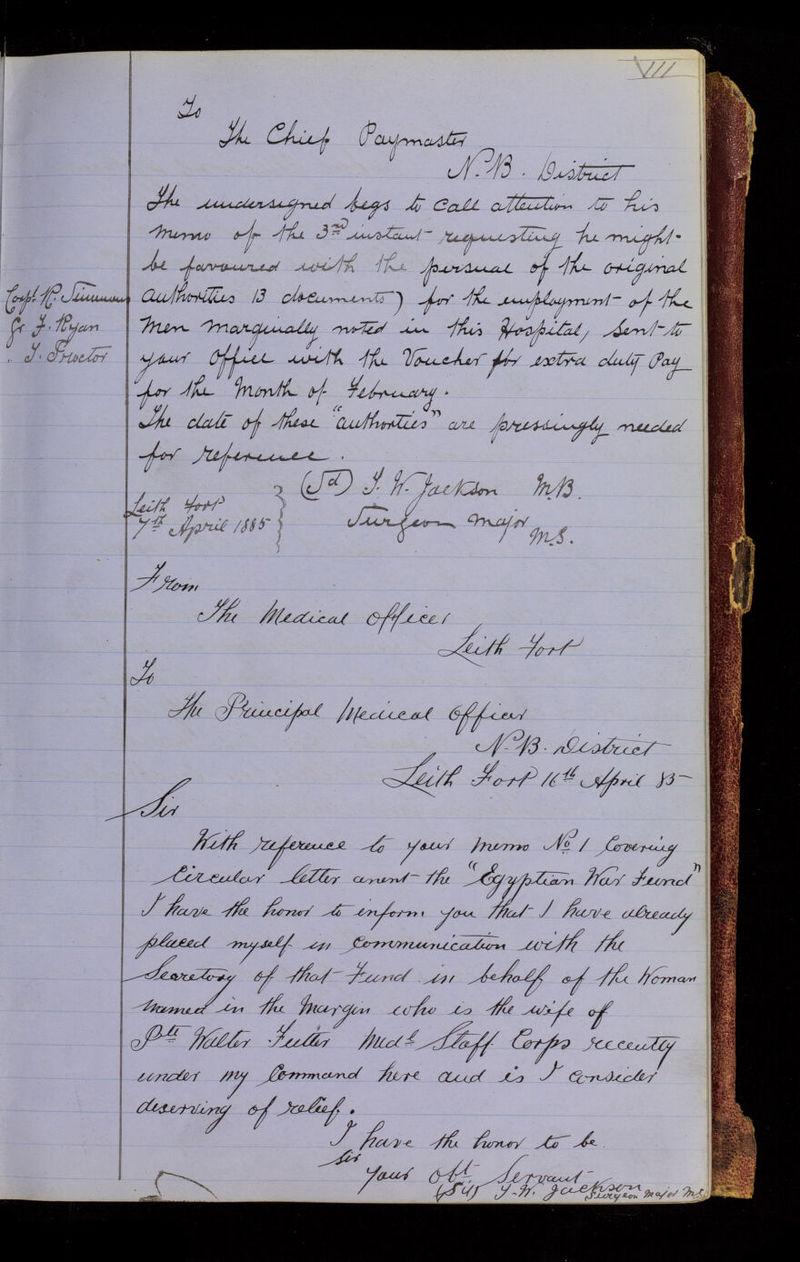 VII
To
The Chief Paymaster
N.B. District
The undersigned begs to call attention to his
memo of the 3rd instant requesting he might
be favoured with the perusal of the original
authorities 13 documents) for the employment of the
Men marginally noted in this Hospital, sent to
your office with the Voucher for extra duty Pay
for the Month of February.
Corpl R.
Gr F. Ryan
" J. Proctor
The date of these "authorties" are pressingly needed
for reference.
(Sd) J. W. Jackson M.B.
Leith Fort
7th April 1885
Surgeon Major
M.S.
From
The Medical Officer
Leith Fort
To
The Principal Medical Officer
N.B. District
Leith Fort 16th April 85
Sir
With reference to your memo No 1 Covering
Circular letter anent the "Egyptian War Fund"
I have the honor to inform you that I have already
placed myself in communication with the
Secretary of that Fund in behalf of the Woman
named in the Margin who is the wife of
Pte Walter Medl Staff Corps recently
under my Command here and is I consider
deserving of relief.
I have the honor to be
Sir
Your Obt Servant
(Sd) J. W. Jackson
Surgeon Major M.S.